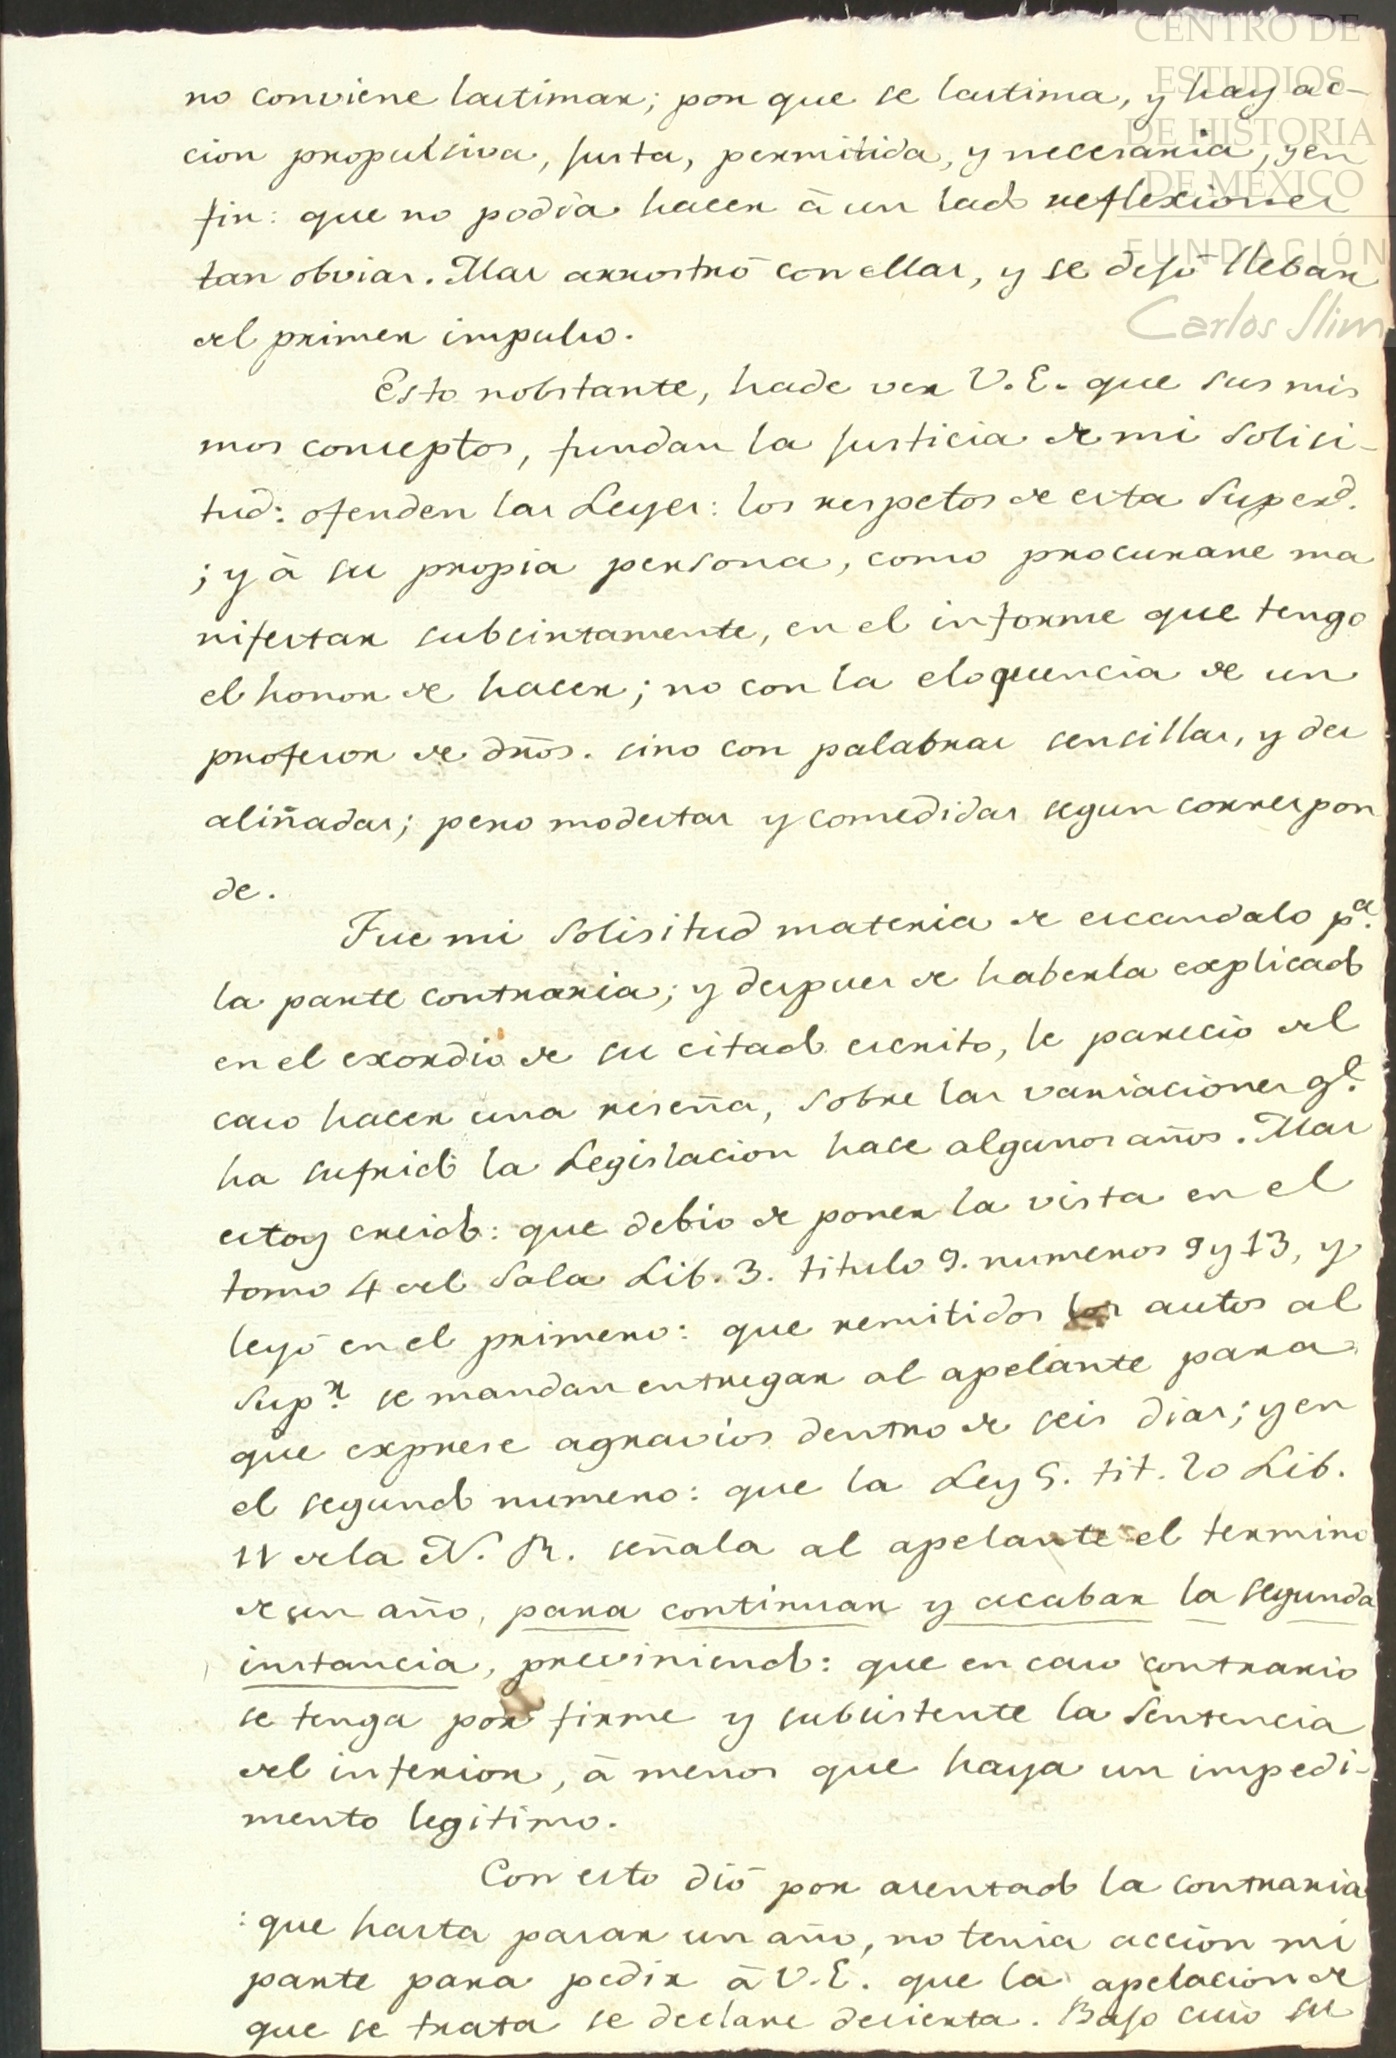 CENTRO DE
ESTUDIOS
DE HISTORIA
DE MÉXICO
FUNDACIÓN
Carlos Slim
no conviene lastimar; por que se lastima, y hay ac-
cion propulsiva, justa, permitida, y necesaria, y en
fin: que no podia hacer à un lado reflexiones
tan obvias. Mas arrostró con ellas, y se dejó llebar
del primer impulso.
Esto nobstante, hade ver V.E. que sus mis
mos conceptos, fundan la justicia de mi solisi-
tud: ofenden las Leyes: los respetos de esta Superd.
; y à su propia persona, como procurare ma
nifestar subsintamente, en el informe que tengo
el honor de hacer; no con la eloquencia de un
profesor de dños. sino con palabras sensillas, y des
aliñadas; pero modestas y comedidas segun correspon
de.
Fue mi solisitud materia de escandalo pa.
la parte contraria; y despues de haberla explicado
en el exordio de su citado escrito, le parecio del
caso hacer una reseña, sobre las variaciones qe.
ha sufrido la Legislacion hace algunos años. Mas
estoy creido: que debio de poner la vista en el
tomo 4 del Sala Lib. 3. titulo 9. numeros 9 y 13, y
leyó en el primero: que remitidos los autos al
Supr. se mandan entregar al apelante para
que exprese agravios dentro de seis dias; y en
el segundo numero: que la Ley 5. tit. 20 Lib.
11 de la N. R. señala al apelante el termino
de un año, para continuar y acabar la segunda
instancia, previniendo: que en caso contrario
se tenga por firme y subsistente la Sentencia
del inferior, à menos que haya un impedi-
mento legitimo.
Con esto dió por asentado la contraria
: que hasta pasar un año, no tenia accion mi
parte para pedir à V.E. que la apelacion de
que se trata se declare decierta. Bajo cuio su